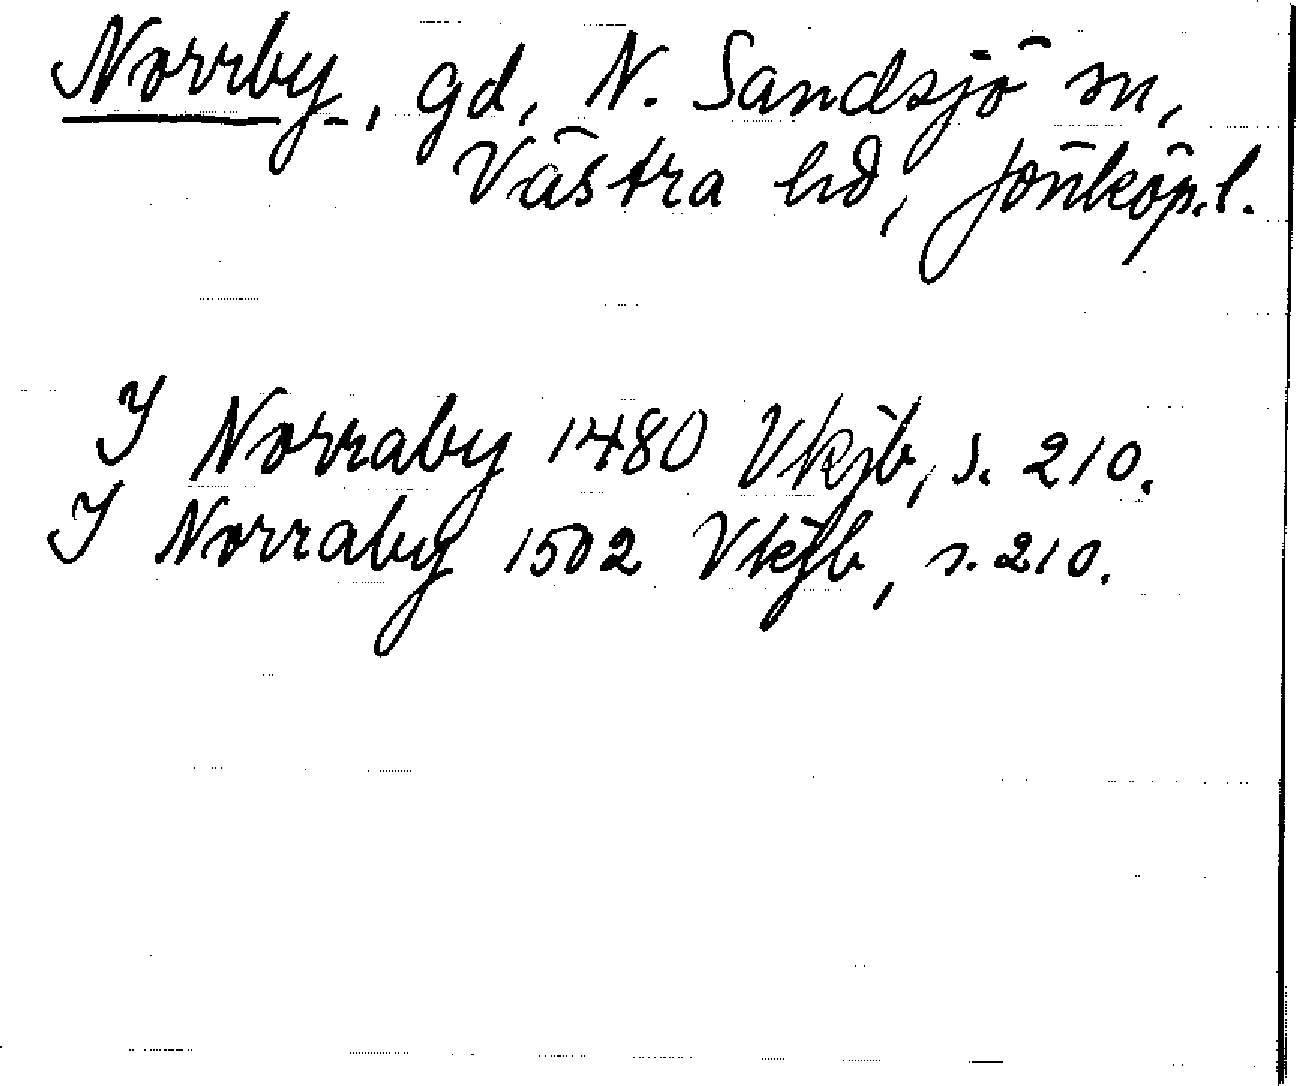 Norrby, gd, N. Sandsjö sn,
Västra hd, Jönköp.l.
I Norraby 1480 Vkjb, s. 210.
I Norraby 1502 Vkjb, s. 210.